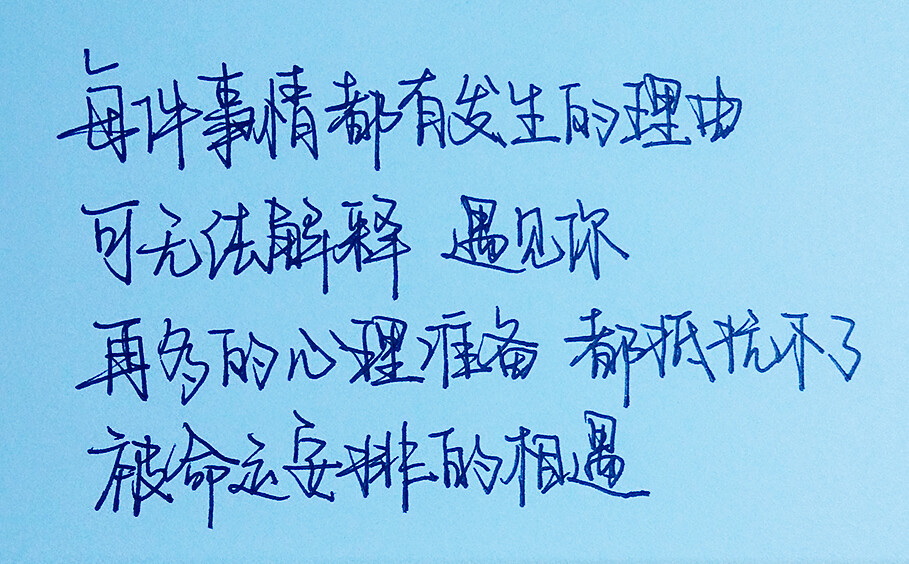 每件事情都有发生的理由
可无法解释 遇见你
再多的心理准备 都抵抗不了
被命运安排的相遇